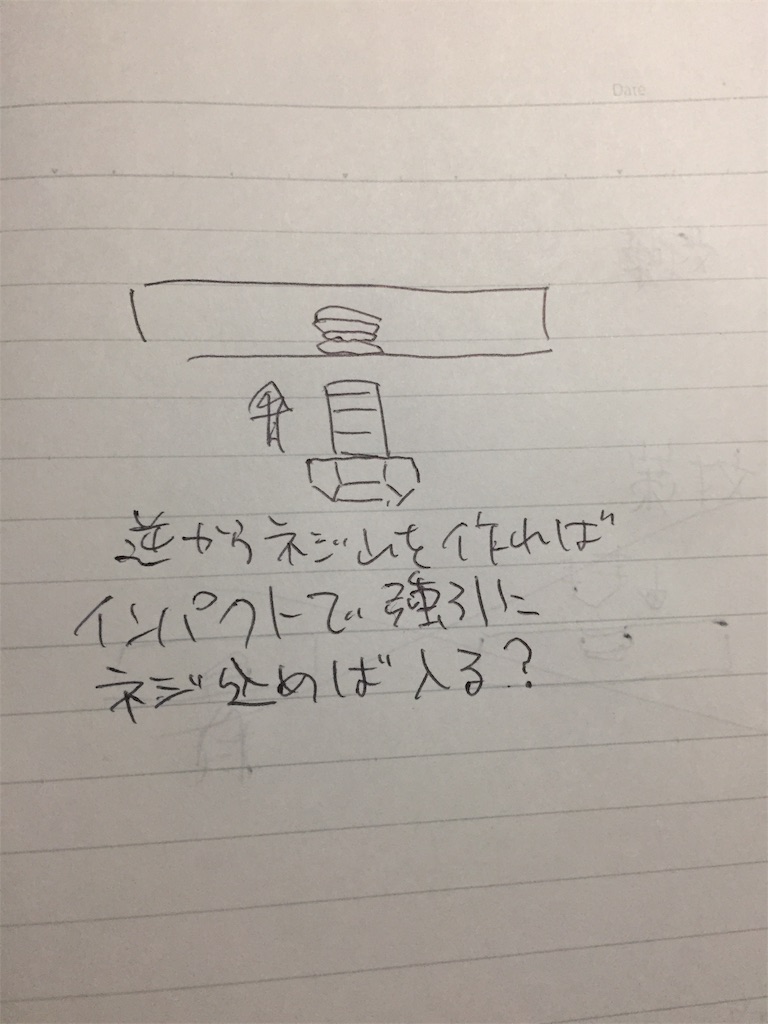 Date
逆からネジ山を作れば
インパクトで強引に
ネジ込めば入る?